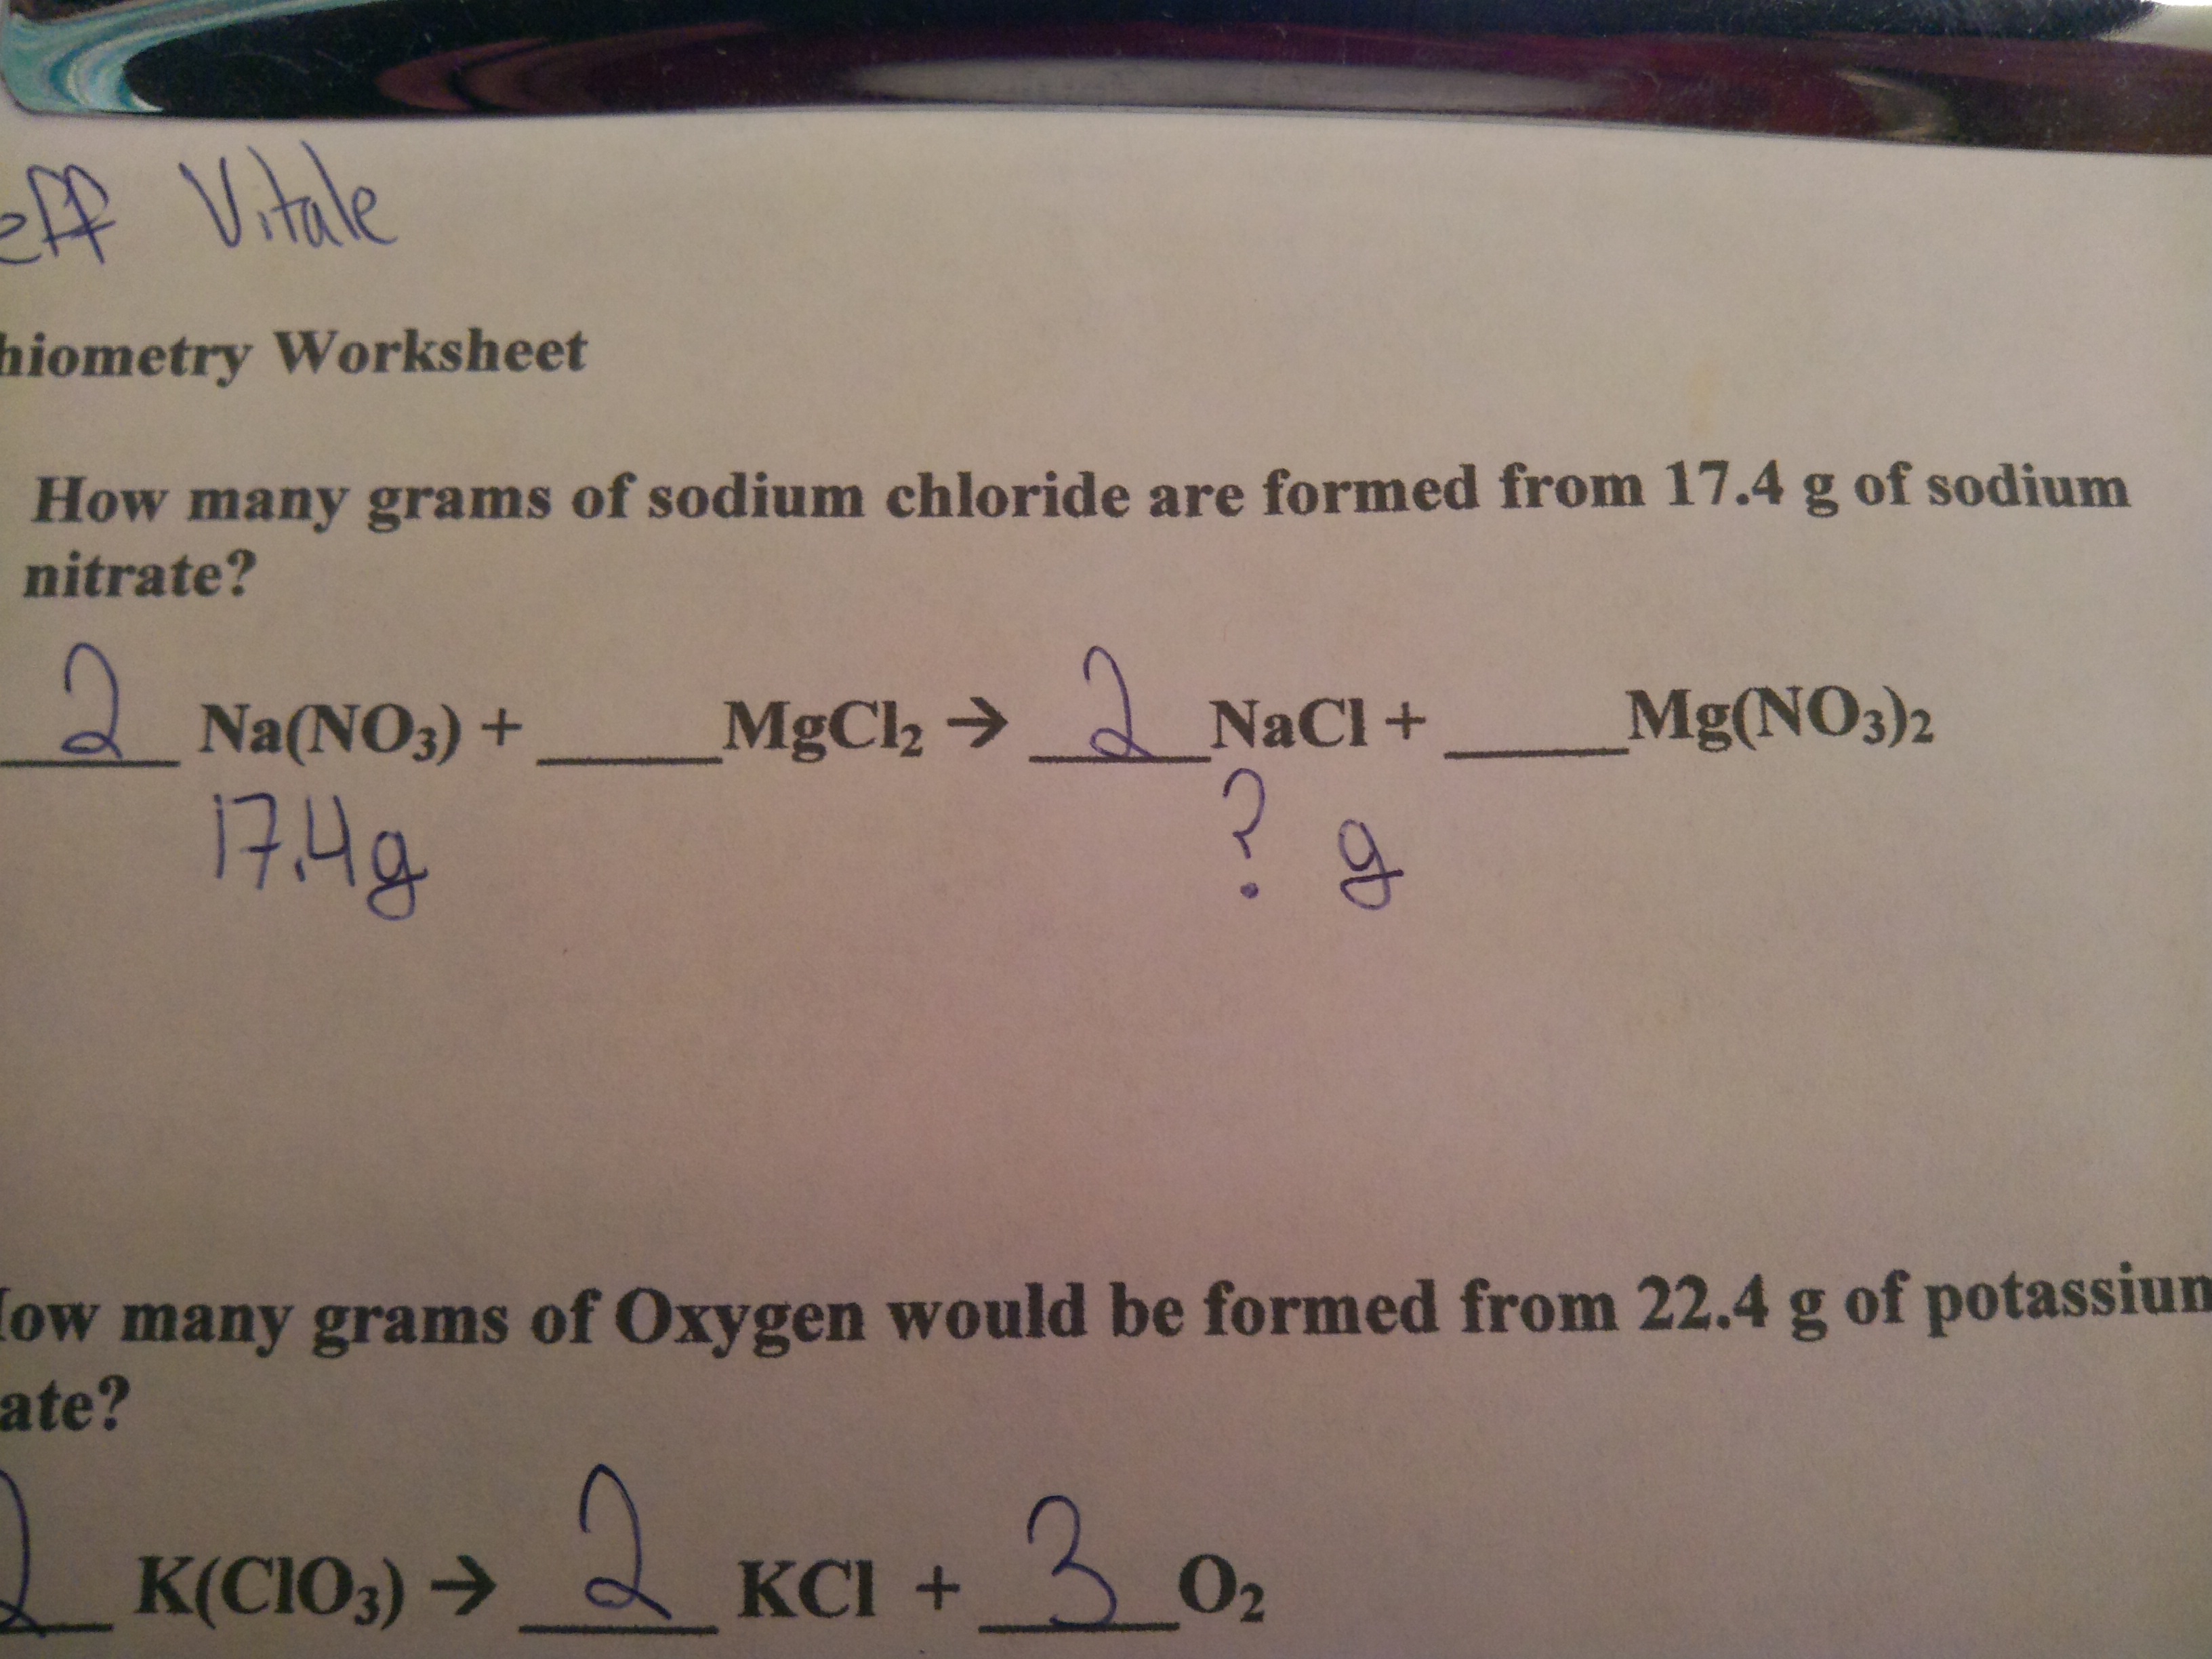 eff Vitale
hiometry Worksheet
How many grams of sodium chloride are formed from 17.4 g of sodium
nitrate?
2 Na(NO₃) + ____MgCl₂ → 2 NaCl + ____Mg(NO₃)2
17.4g ? g
ow many grams of Oxygen would be formed from 22.4 g of potassiun
ate?
2 K(ClO₃) → 2 KCl + 3 O₂